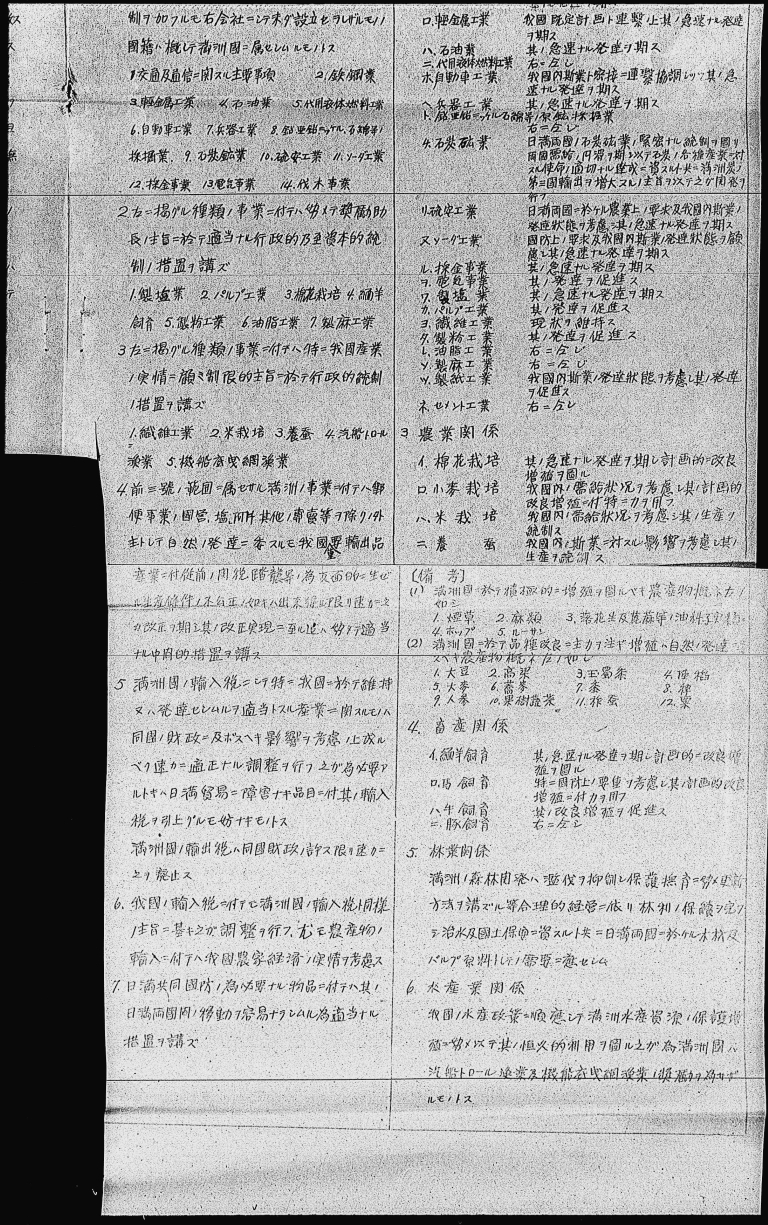 制ヲ加フルモ右会社ニシテ未ダ設立セラレザルモノノ
国籍ハ概シテ満洲國ニ属セシムルモノトス
1.交通及通信ニ関スル主要事項 2.鉄鋼業
3.軽金属工業 4.石油業 5.代用液体燃料工業
6.自動車工業 7.兵器工業 8.鉛亜鉛ニッケル、石綿等ノ
採掘業、 9.石炭鉱業 10.硫安工業 11.ソーダ工業
12.採金事業 13.電気事業 14.伐木事業
2.左ニ掲グル種類ノ事業ニ付テハ努メテ奨励助
長ノ主旨ニ於テ適当ナル行政的乃至資本的統
制ノ措置ヲ講ズ
1.製塩業 2.パルプ工業 3.棉花栽培 4.緬羊
飼育 5.製粉工業 6.油脂工業 7.製麻工業
3.左ニ掲グル種類ノ事業ニ付テハ特ニ我国産業
ノ実情ニ顧ミ制限的主旨ニ於テ行政的統制
ノ措置ヲ講ズ
1.繊維工業 2.米栽培 3.養蚕 4.汽船トロール
漁業 5.機船底曳網漁業
4.前三號ノ範囲ニ属セザル満洲ノ事業ニ付テハ郵
便事業、国営、塩、阿片其他ノ専賣等ヲ除クノ外
主トシテ自然ノ発達ニ委スルモ我國重要輸出品
産業ニ付従前ノ関税障
ル生産條件ノ不自正ノ如キハ出来得ル限リ速カニ之
ガ改正ヲ期シ其ノ改正実現ニ至ル迄ハ努メテ適当
ナル中間的措置ヲ講ス
5 満洲國ノ輸入税ニシテ特ニ我国ニ於テ維持
又ハ発達セシムルヲ適当トスル産業ニ関スルモノハ
同国ノ財政ニ及ボスヘキ影響ヲ考慮ノ上成ル
ベク速カニ適正ナル調整ヲ行フ之ガ為必要ア
ルトキハ日満貿易ニ障害ナキ品目ニ付其ノ輸入
税ヲ引上グルモ妨ナキモノトス
満洲國ノ輸出税ハ同国財政ノ許ス限リ速カニ
之ヲ廃止ス
6. 我國ノ輸入税ニ付テモ満洲國ノ輸入税ト同様
ノ主旨ニ基キ之ガ調整ヲ行フ、尤モ農産物ノ
輸入ニ付テハ我国農家経済ノ実情ヲ考慮ス
7. 日満共同國防ノ為必要ナル物品ニ付テハ其ノ
日満両國間ノ移動ヲ容易ナラシムル為適当ナル
措置ヲ講ズ
ロ.軽金属工業 我國既定計画ト連繋ノ上其ノ急速ナル発達
ヲ期ス
ハ.石油業 其ノ急速ナル発達ヲ期ス
ニ.代用液体燃料工業 右ニ仝ジ
ホ.自動車工業 我國内斯業ト密接ニ連繋協調シツヽ其ノ急
速ナル発達ヲ期ス
ヘ.兵器工業 其ノ急速ナル発達ヲ期ス
ト.鉛亜鉛ニッケル石綿等ノ採掘業
右ニ仝ジ
チ.石炭鉱業 日満両國ノ石炭鉱業ノ緊密ナル統制ヲ圖リ
両国需給ノ円滑ヲ期シ以テ石炭ノ各種産業ニ対
スル使命ノ適切ナル達成ニ資スルト共ニ満洲炭ノ
第三國輸出ヲ増大スルノ主旨ヲ以テ之ガ開発ヲ
行フ
リ.硫安工業 日満両國ニ於ケル農業上ノ要求及我國内斯業ノ
発達状態ヲ考慮シ其ノ急速ナル発達ヲ期ス
ヌ.ソーダ工業 国防上ノ要求及我國内斯業ノ発達状態ヲ顧
慮シ其ノ急速ナル発達ヲ期ス
ル.採金事業 其ノ急速ナル発達ヲ期ス
ヲ.電気事業 其ノ発達ヲ促進ス
ワ.製塩業 其ノ急速ナル発達ヲ期ス
カ.パルプ工業 其ノ発達ヲ促進ス
ヨ.繊維工業 現状ヲ維持ス
タ.製粉工業 其ノ発達ヲ促進ス
レ.油脂工業 右ニ仝ジ
ソ.製麻工業 右ニ仝ジ
ツ.製紙工業 我國内斯業ノ発達状態ヲ考慮シ其ノ発達
ヲ促進ス
ネ.セメント工業 右ニ仝ジ
3 農業関係
イ.棉花栽培 其ノ急速ナル発達ヲ期シ計画的ニ改良
増殖ヲ圖ル
ロ小麥栽培 我國内ノ需給状況ヲ考慮シ其ノ計画的
改良増殖ニ付特ニ力ヲ用フ
ハ.米栽培 我國内ノ需給状況ヲ考慮シ其ノ生産ヲ
統制ス
ニ.養蚕 我國内ノ斯業ニ対スル影響ヲ考慮シ其ノ
生産ヲ統制ス
〔備考〕
(1) 満洲國ニ於テ積極的ニ増殖ヲ圖ルベキ農産物概ネ左ノ
如シ
1.煙草 2.麻類 3.落花生及蓖麻等ノ油料子実類
4.ホップ 5.ルーサン
(2) 満洲國ニ於テ品種改良ニ主力ヲ注ギ増殖ハ自然ノ発達ニ
スベキ農産物概ネ左ノ如シ
1.大豆 2.高梁 3.玉蜀黍 4.陸稲
5.大麥 6.蕎麥 7.黍 8.稗
9.人参 10.果樹蔬菜 11.柞蚕 12.粟
4. 畜産関係
イ.緬羊飼育 其ノ急速ナル発達ヲ期シ計画的ニ改良増
殖ヲ圖ル
ロ.馬飼育 特ニ国防上ノ要望ヲ考慮シ其ノ計画的改良
増殖ニ付力ヲ用フ
ハ.牛飼育 其ノ改良増殖ヲ促進ス
ニ.豚飼育 右ニ仝ジ
5. 林業関係
満洲ノ森林開発ハ濫伐ヲ抑制シ保護撫育ニ努メ更新
方法ヲ講ズル等合理的経営ニ依リ林利ノ保続ヲ完ウ
シ治水及國土保安ニ資スルト共ニ日満両國ニ於ケル木材及
パルプ原料トシテノ需要ニ應セシム
6. 水産業関係
我国ノ水産政策ニ順應シテ満洲水産資源ノ保護増
殖ニ努メ以テ其ノ恒久的利用ヲ圖ル之ガ為満洲国ハ
汽船トロール漁業及機船底曳網漁業ノ奨励ヲ為サザ
ルモノトス